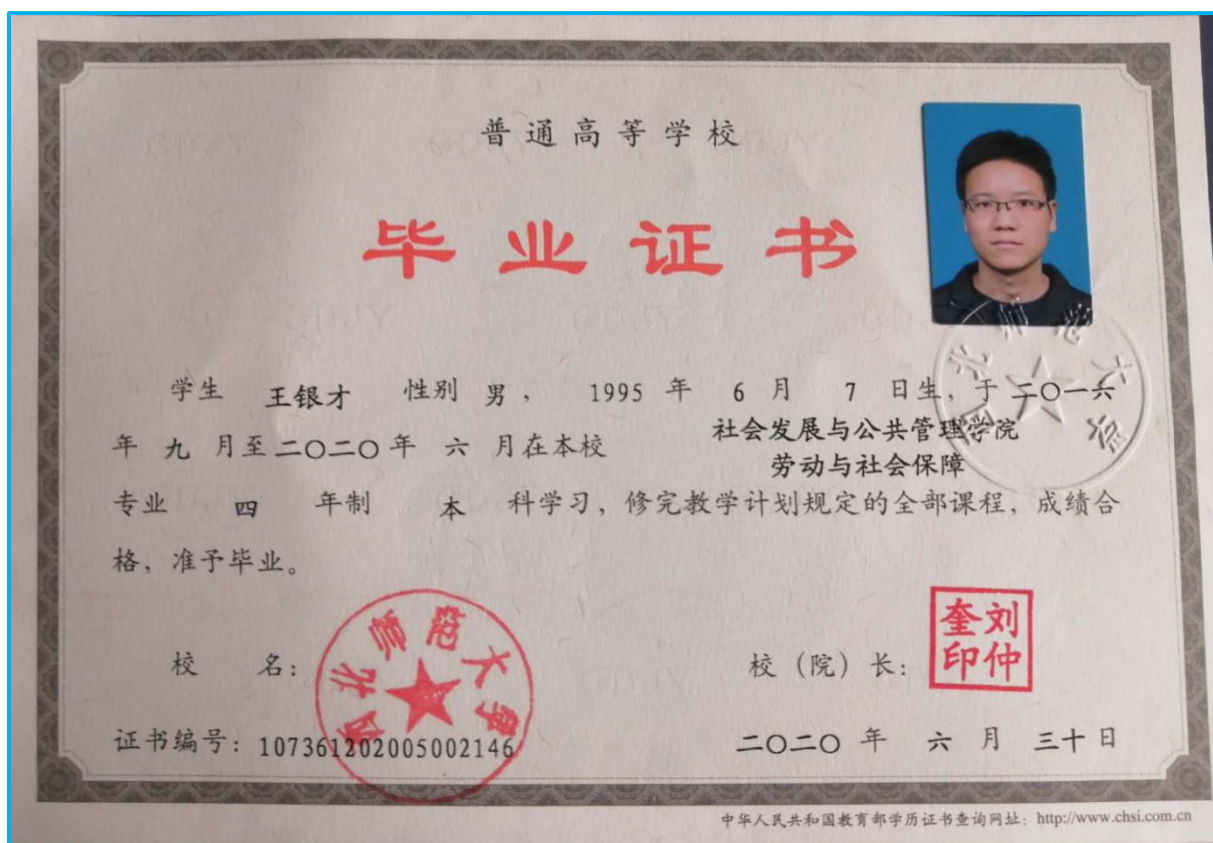 普通高等学校
毕业证书
学生 王银才 性别 男， 1995 年 6 月 7 日生，于 二〇一六
年 九 月至 二〇二〇 年 六 月在本校 社会发展与公共管理学院
劳动与社会保障
专业 四 年制 本 科学习，修完教学计划规定的全部课程，成绩合
格，准予毕业。
校 名： 西北师范大学
校（院）长： 刘仲奎印
证书编号：107361202005002146
二〇二〇 年 六 月 三十 日
中华人民共和国教育部学历证书查询网址：http://www.chsi.com.cn